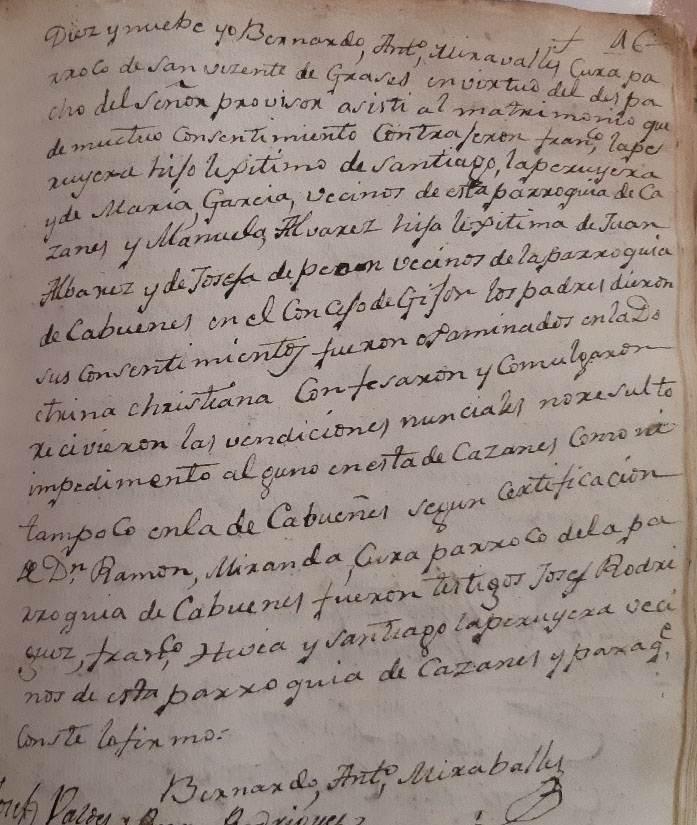 46
Diez y nuebe yo Bernardo, Antº, Miravalles Cura pa
rroco de san vizente de Grases en virtud del des pa
cho del Señor provisor asisti al matrimonio que
de muctuo Consentimiento Contraseron franᶜº, lape
ruyera hijo lexitimo de santiago, laperuyera
y de Maria, Garcia, vecinos de esta parroquia de Ca
zanes y Manuela, Alvarez hija lexitima de Juan
Albarez y de Josefa de peon vecinos de la parroquia
de Cabuenes en el Concejo de Gijon los padres dieron
sus Consentimientos fueron examinados en la Do
ctrina christiana Confesaron y Comulgaron
recivieron las vendiciones nunciales no resulto
impedimento alguno en esta de Cazanes Como ni
tampoco en la de Cabueñes segun Certificacion
de Dⁿ Ramon, Miranda, Cura parroco de la pa
rroquia de Cabuenes fueron testigos Josef Rodri
guez, franᶜº, y santiago laperuyera veci
nos de esta parroquia de Cazanes y para qᵉ
Conste lo firmo=
Bernardo, Antº, Miraballes
Josef Valdes y Rodriguez